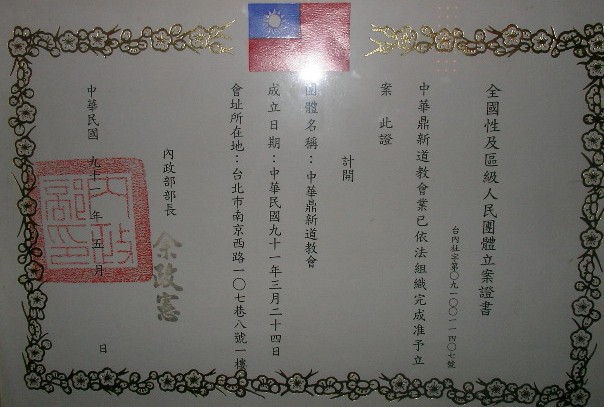 全國性及區級人民團體立案證書
台內社字第〇九一〇〇一一四〇七號
中華鼎新道教會業已依法組織完成准予立
案此證
計開
團體名稱：中華鼎新道教會
成立日期：中華民國九十一年三月二十四日
會址所在地：台北市南京西路一〇七巷八號一樓
內政部部長 余政憲
中華民國 九十一 年 五 月 日
內政部印